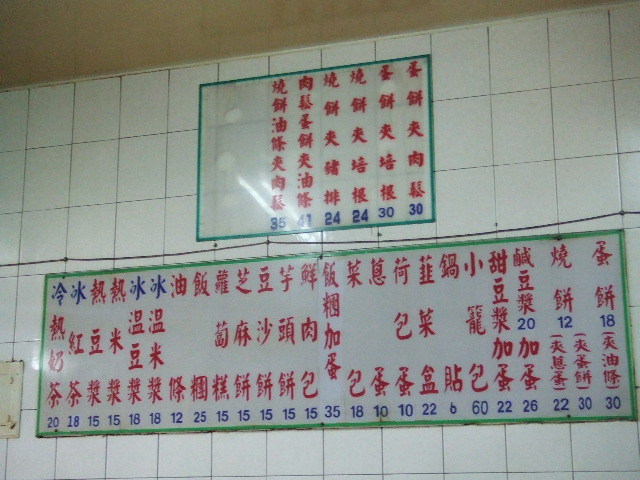 蛋餅夾肉鬆 30
蛋餅夾培根 30
燒餅夾培根 24
燒餅夾豬排 24
肉鬆蛋餅夾油條 41
燒餅油條夾肉鬆 35
蛋餅 18
(夾油條) 30
(夾蛋餅) 30
燒餅 12
(夾蔥蛋) 22
鹹豆漿 20
加蛋 26
甜豆漿加蛋 22
小籠包 60
鍋貼 6
韮菜盒 22
荷包蛋 10
蔥蛋 10
菜包 18
飯糰加蛋 35
鮮肉包 15
芋頭餅 15
豆沙餅 15
芝麻餅 15
蘿蔔糕 15
飯糰 25
油條 12
冰溫米漿 18
冰溫豆漿 18
熱米漿 15
熱豆漿 15
冰紅茶 18
冷熱奶茶 20